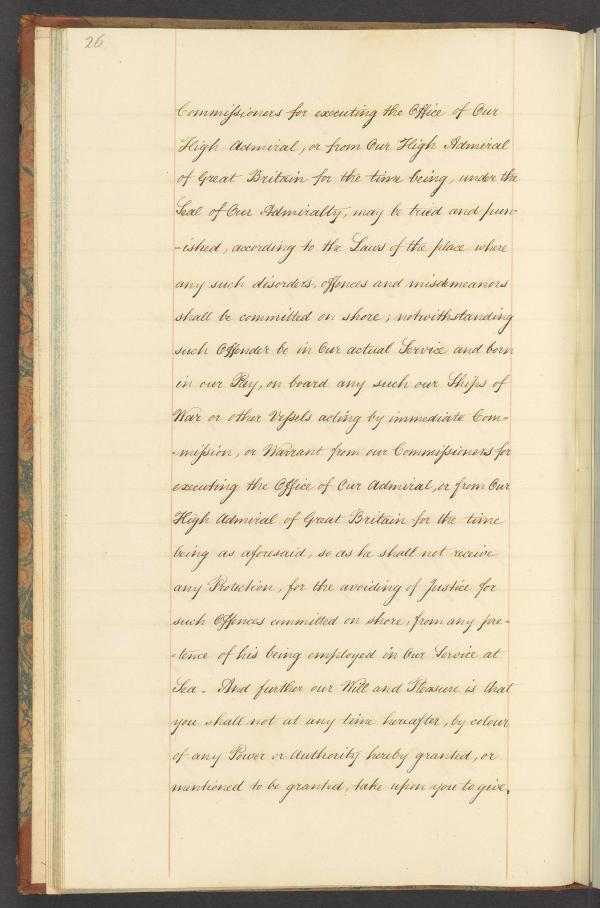 26
Commissioners for executing the Office of Our
High Admiral, or from Our High Admiral
of Great Britain for the time being, under the
Seal of Our Admiralty, may be tried and pun-
-ished, according to the Laws of the place where
any such disorders, offences and misdemeanors
shall be committed on shore; notwithstanding
such Offender be in Our actual Service and born
in our Pay, on board any such our Ships of
War or other Vessels acting by immediate Com-
-mission, or Warrant from our Commissioners for
executing the Office of Our Admiral, or from Our
High Admiral of Great Britain for the time
being as aforesaid, so as he shall not receive
any Protection, for the avoiding of Justice for
such Offences committed on shore, from any pre-
-tence of his being employed in Our Service at
Sea. And further our Will and Pleasure is that
you shall not at any time hereafter, by colour
of any Power or Authority hereby granted, or
mentioned to be granted, take upon you to give,